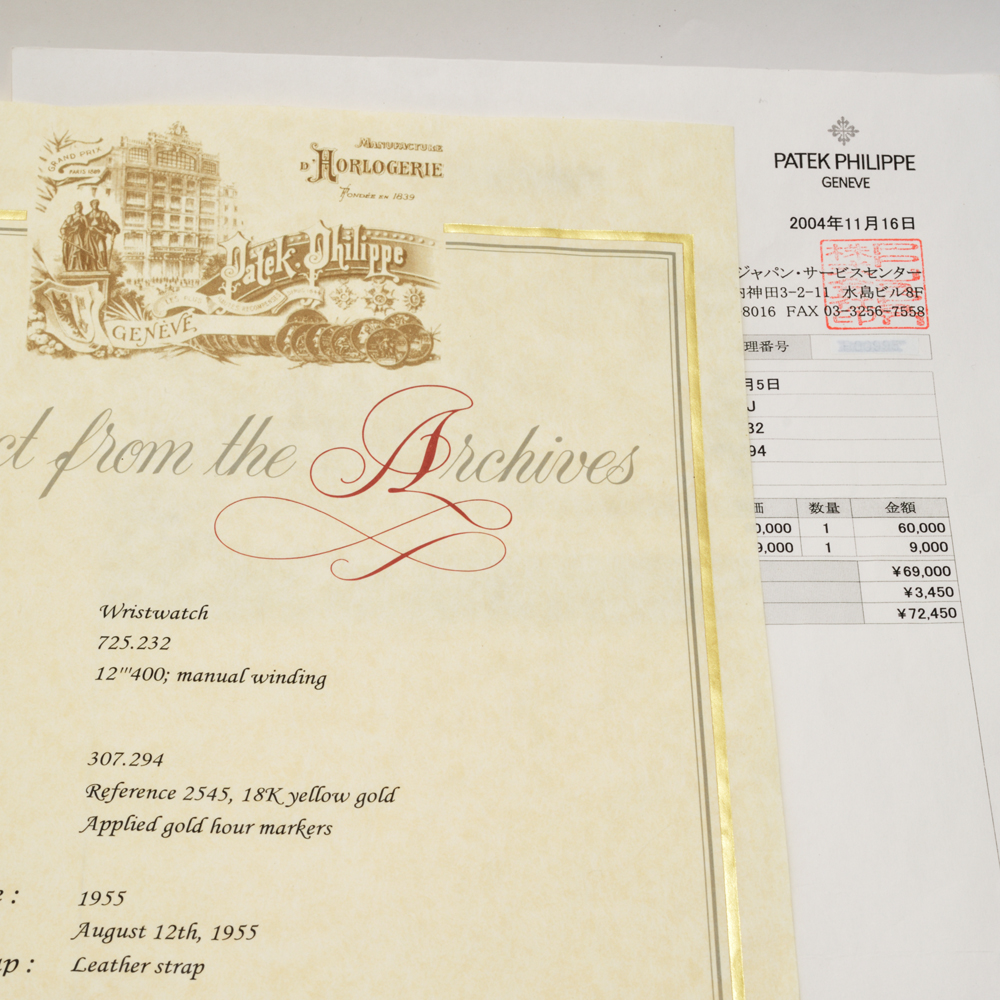 GRAND PRIX
PARIS 1889
MANUFACTURE
D'HORLOGERIE
FONDÉE EN 1839
Patek. Philippe
GENÈVE.
ct from the Archives
Wristwatch
725.232
12'''400; manual winding
307.294
Reference 2545, 18K yellow gold
Applied gold hour markers
e : 1955
August 12th, 1955
ap : Leather strap
PATEK PHILIPPE
GENEVE
2004年11月16日
ジャパン・サービスセンター
内神田3-2-11 水島ビル8F
8016 FAX 03-3256-7558
理番号
月5日
J
32
94
価 数量 金額
0,000 1 60,000
9,000 1 9,000
¥69,000
¥3,450
¥72,450